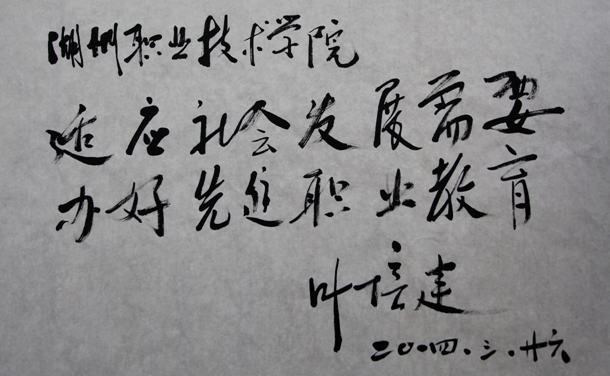 湖州职业技术学院
适应社会发展需要
办好先进职业教育
叶培建
二〇〇四.三.廿六